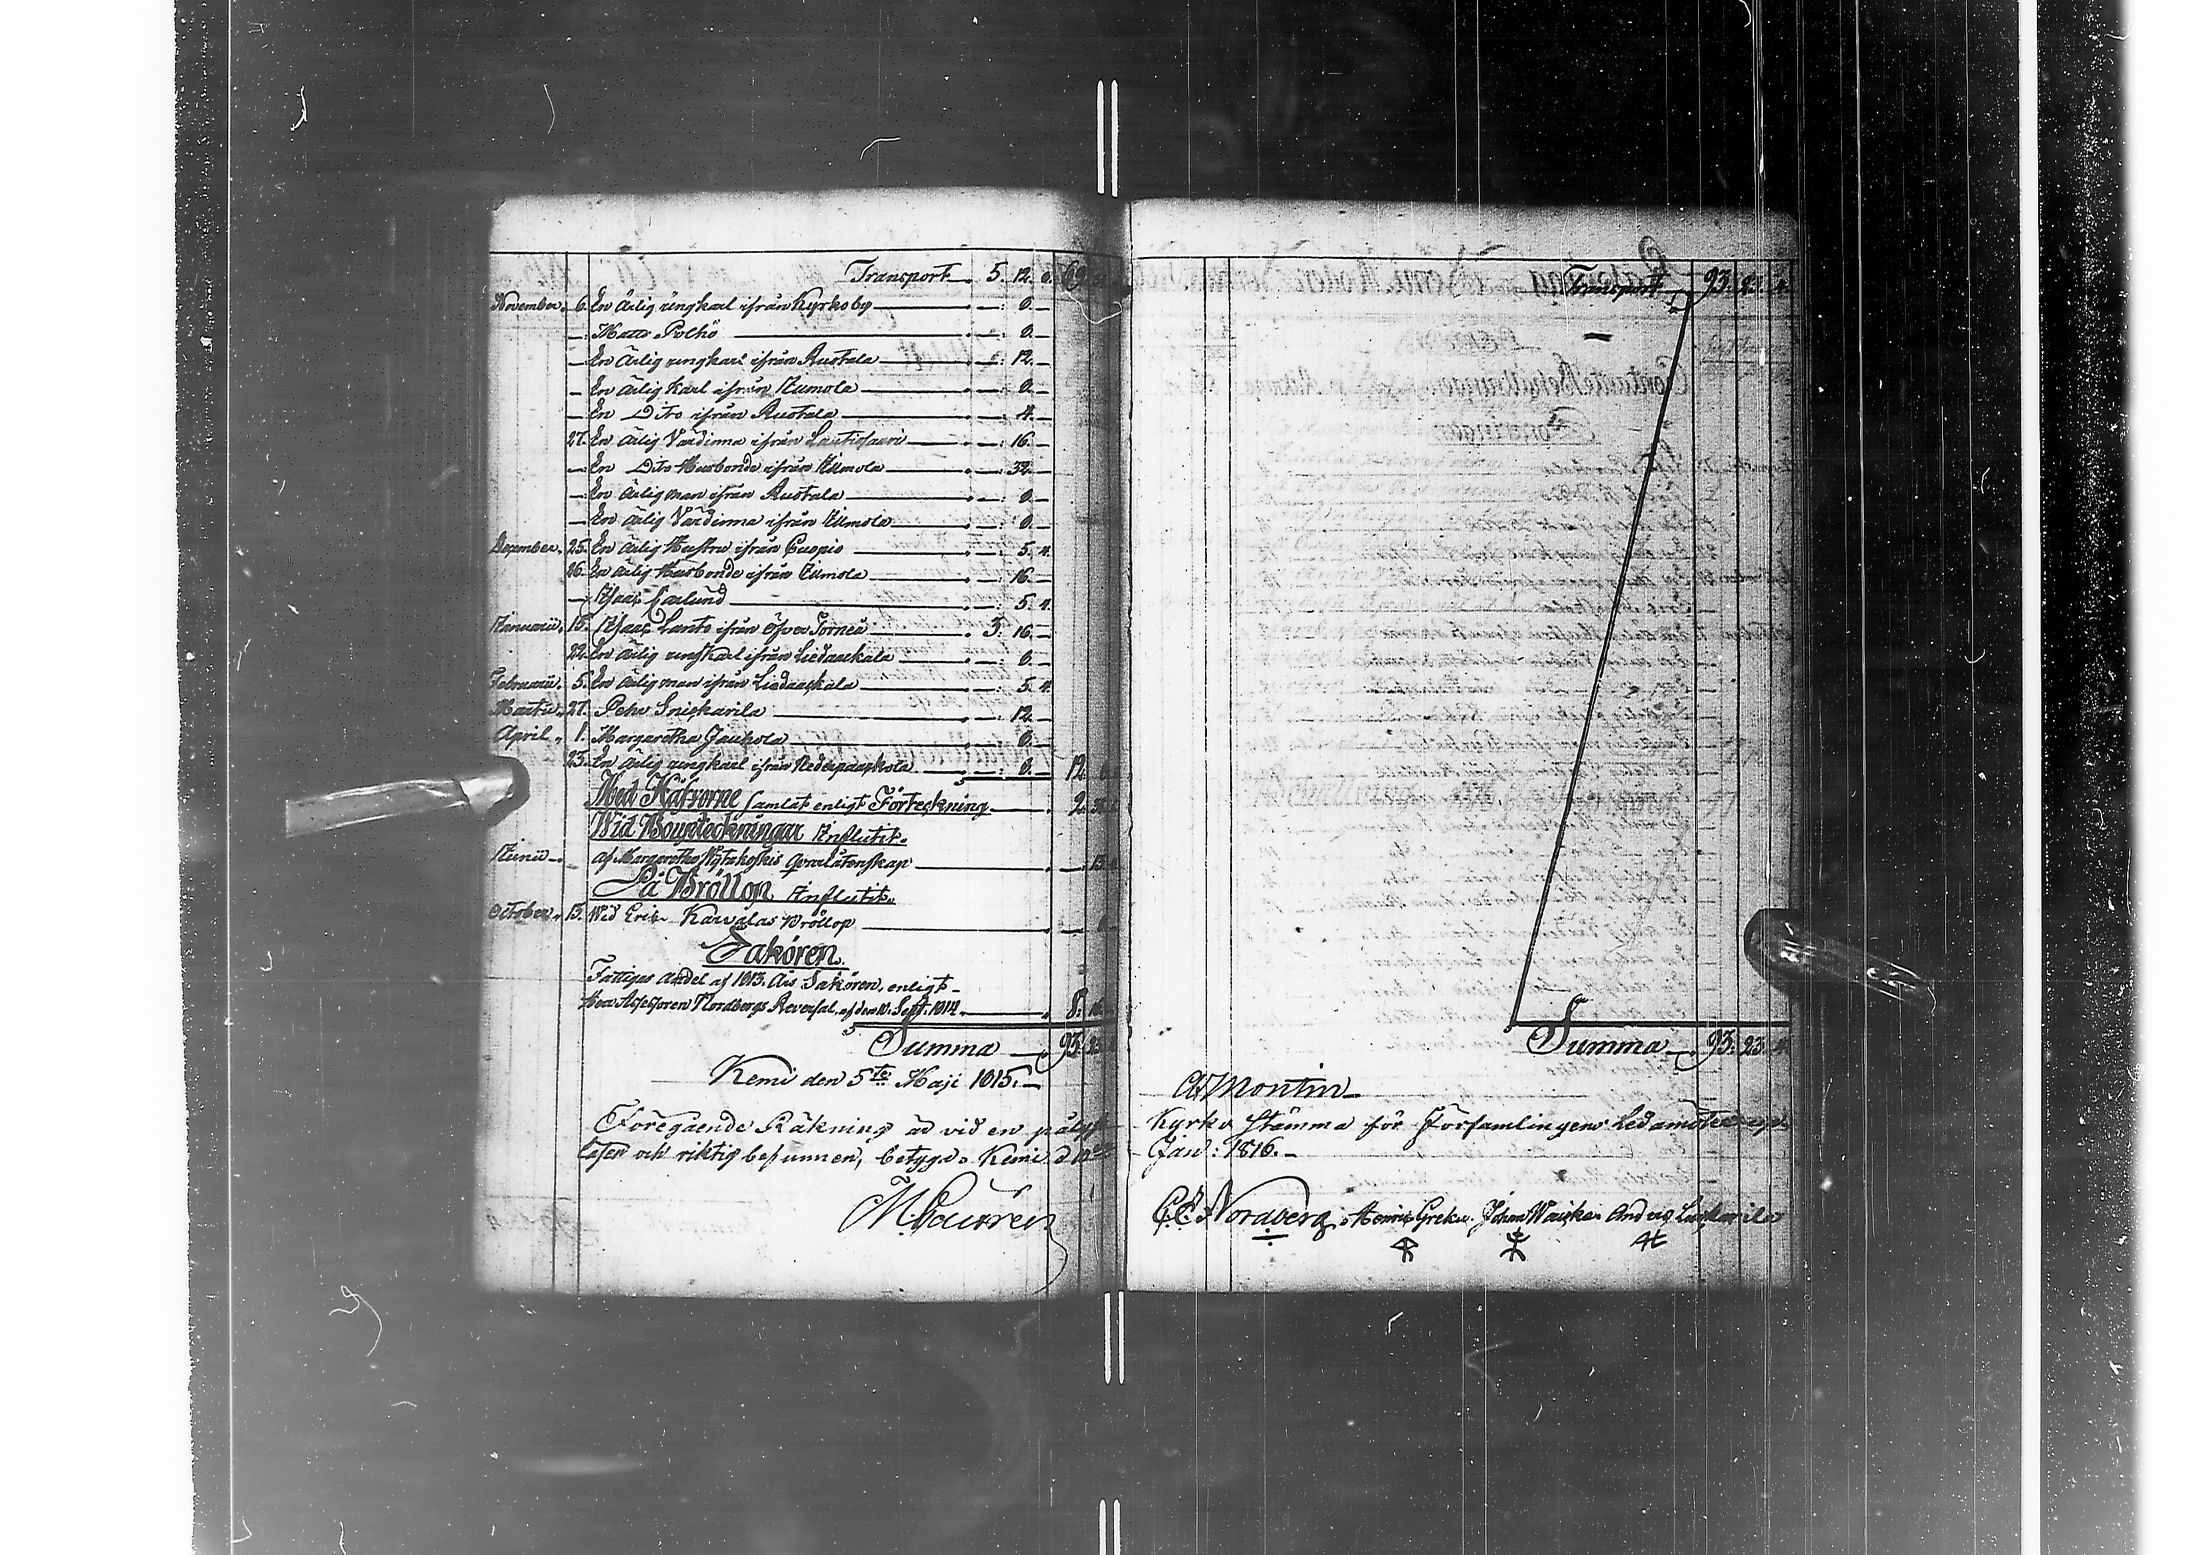 Transport 5. 12. 0. 69
November. 6. En Ärlig ungkarl ifrån Kyrkoby — 8. —
— Matts Polhö — 8. —
— En Ärlig ungkarl ifrån Ruotala — 12. —
— En Ärlig Karl ifrån Ilmola — 8. —
— En Dito ifrån Ruotala — 4. —
27. En Ärlig Värdinna ifrån Lautiosaari — 16. —
— En Dito Husbonde ifrån Ilmola — 32. —
— En Ärlig man ifrån Ruotala — 8. —
— En Ärlig Värdinna ifrån Ilmola — 8. —
December. 25. En Ärlig Hustru ifrån Cuopio — 5. 4.
26. En Ärlig Husbonde ifrån Ilmola — 16. —
— Isaac Carlund — 5. 4.
Januarii. 15. Isaac Lanto ifrån Öfver Torneå 3. 16. —
22. En Ärlig ungkarl ifrån Liedakkala — 8. —
Februarii. 5. En Ärlig man ifrån Liedakkala — 5. 4.
Martii. 27. Pehr Snickarila — 12. —
April. 1. Margaretha Jaukola — 8. —
23. En Ärlig ungkarl ifrån Nederpaakkola — 8. — 12.
Med Håfvorne samlat enligt Förteckning 2.
Wid Boupteckningar Influtit.
Junii — af Margaretha qvarlåtenskap
På Bröllop Influtit.
October. 15. Wid Erik Karvalas Bröllop
Sakören.
Fattigas Andel af 1813. Års Sakören, enligt
Herr Assessoren Nordbergs Reversal, af den 10. Sept. 1814. 8. 16
Summa 93. 23
Kemi den 5te Maji 1815.
Föregående Räkning är vid en
läsen och riktig befunnen, betygas Kemi d
Transport 93. 23. 4.
Summa 93. 23. 4.
Montin
Kyrko Stämma för Församlingens Ledamöter
Jan: 1816.
C. E. Nordberg. Henric Greku. Johan Anders